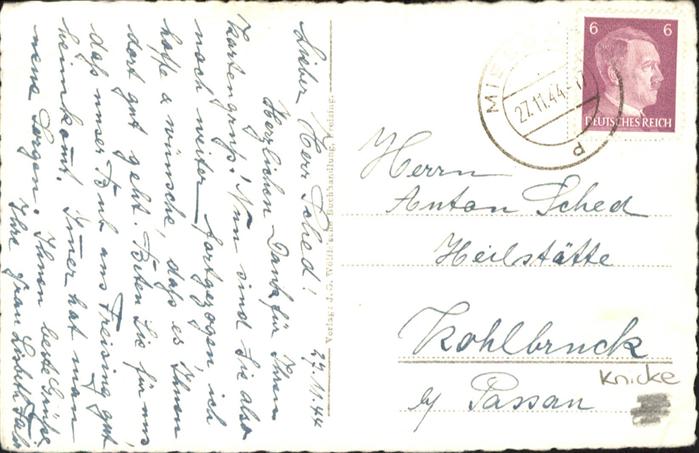 27.11.44
Lieber Herr Sched!
Herzlichen Dank für Ihren
Kartengruß! Nun sind Sie also
noch weiter fortgezogen, ich
hoffe u. wünsche, daß es Ihnen
dort gut geht. Beten Sie für uns,
daß unser Bub aus Freising gut
heimkommt. Immer hat man
neue Sorgen. Ihnen beste Grüße
Ihre Frau
Verlag: J. G. Buchhandlung, Freising.
6 6
DEUTSCHES REICH
27.11.44
d
Herrn
Anton Sched
Heilstätte
Kohlbruck
b/ Passau
Knicke